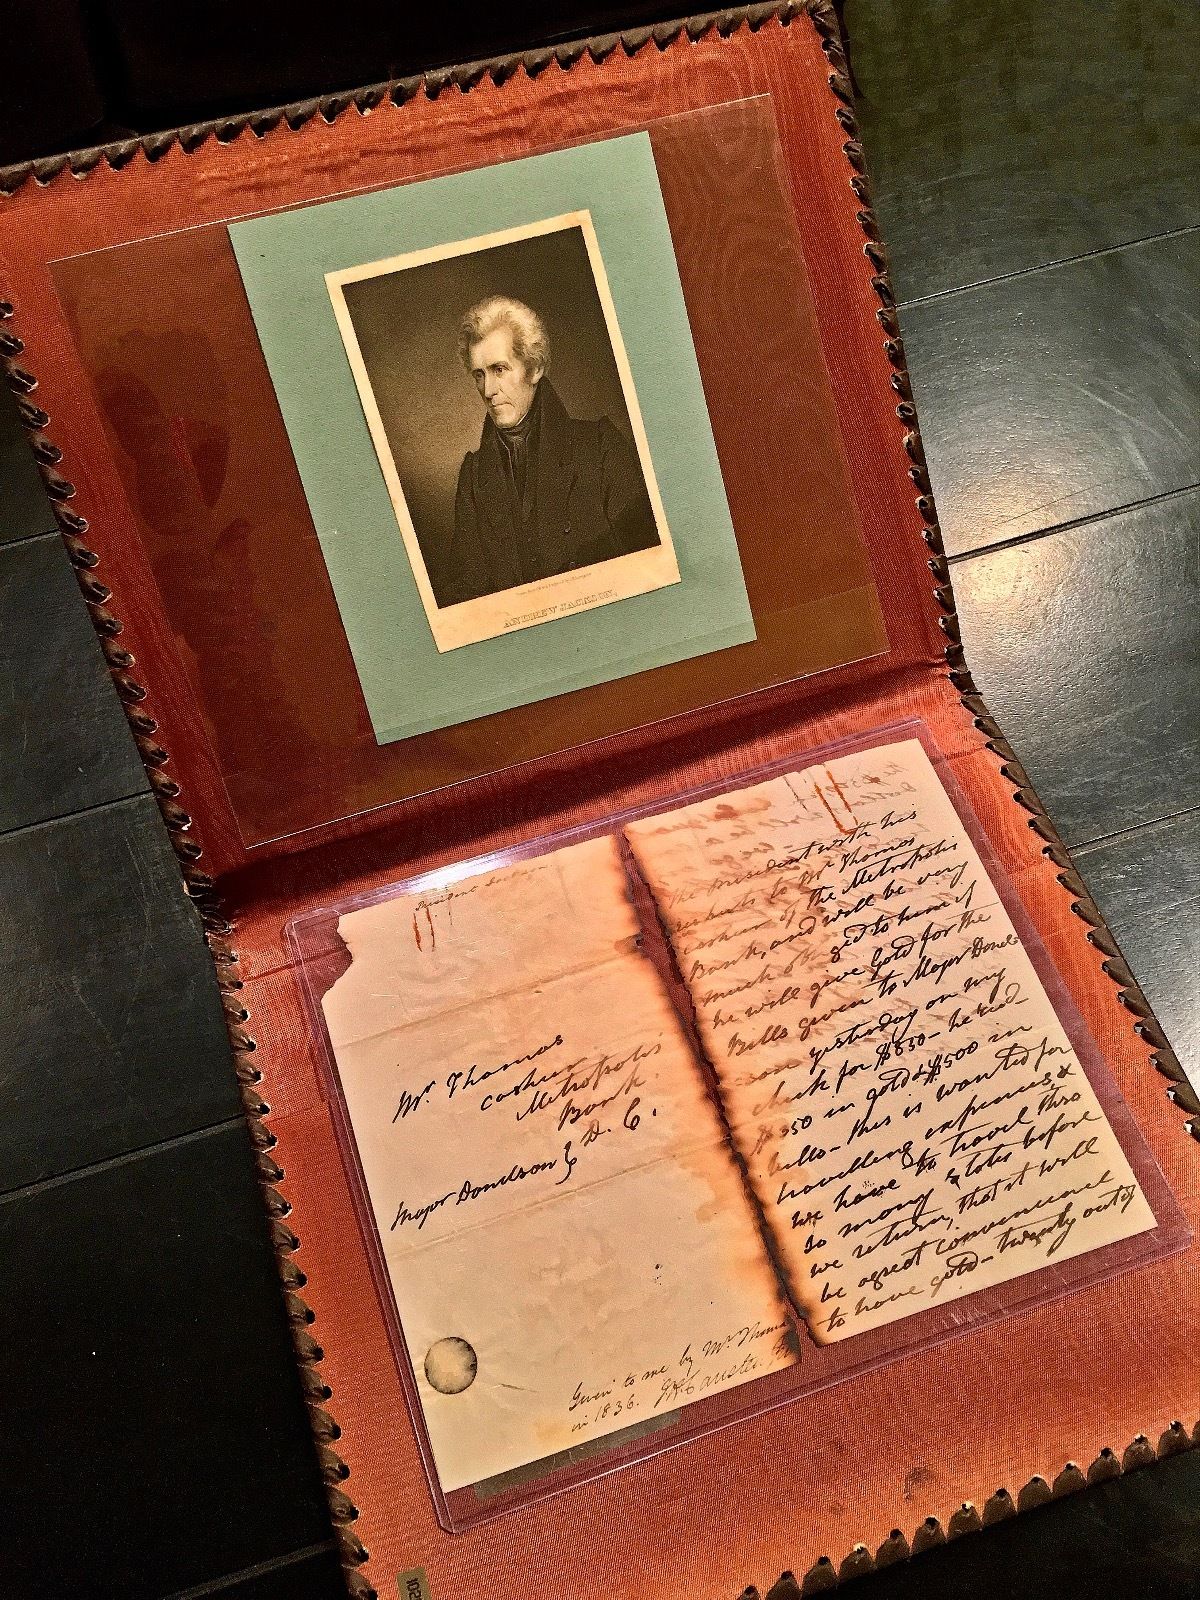 ANDREW JACKSON.
President Jackson
Mr. Thomas
cashier
Metropolis
Bank
D. C.
Major Donelson }
Given to me by Mr. Thomas
in 1836.
The President with his
respects to Mr Thomas
cashier of the Metropolis
Bank, and will be very
much obliged to him if
he will give Gold for the
Bills given to Major Donel-
son yesterday on my
check for $850 - he recd
$350 in gold & $500 in
bills - this is wanted for
travelling expenses, &
we have to travel thro
so many States before
we return, that it will
be a great convenience
to have gold - twenty out of